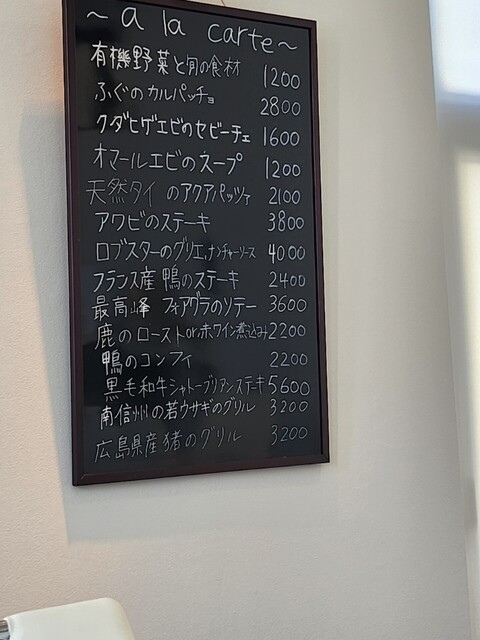 ~ a la carte ~
有機野菜と旬の食材 1200
ふぐのカルパッチョ 2800
クダヒゲエビのセビーチェ 1600
オマールエビのスープ 1200
天然タイのアクアパッツァ 2100
アワビのステーキ 3800
ロブスターのグリエ ソース 4000
フランス産 鴨のステーキ 2400
最高峰 フォアグラのソテー 3600
鹿のローストor赤ワイン煮込み 2200
鴨のコンフィ 2200
黒毛和牛シャトーブリアンステーキ 5600
南信州の若ウサギのグリル 3200
広島県産猪のグリル 3200